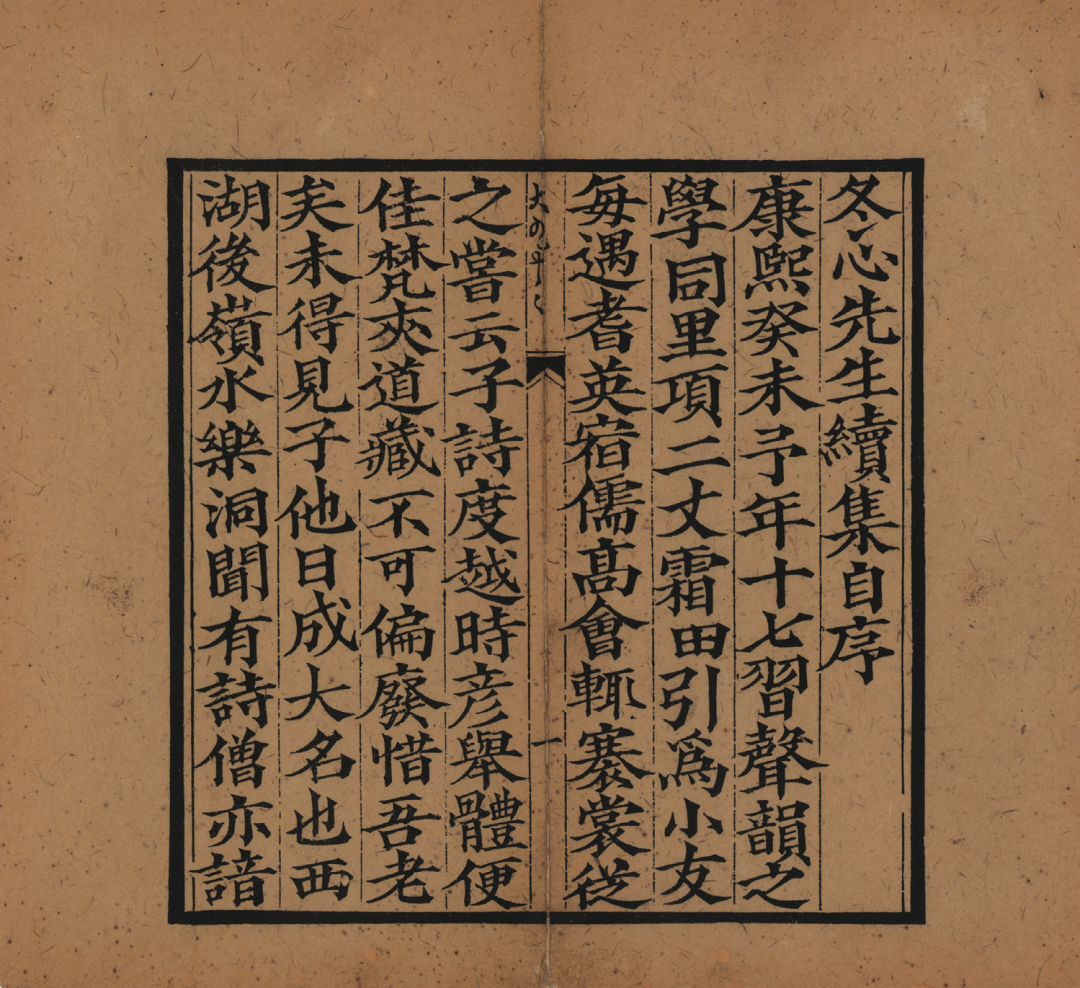 冬心先生續集自序
康熙癸未予年十七習聲韻之
學同里項二丈霜田引爲小友
每遇耆英宿儒高會輒褰裳從
一
之嘗云子詩度越時彦舉體便
佳梵夾道藏不可偏廢惜吾老
矣未得見子他日成大名也西
湖後嶺水樂洞聞有詩僧亦諳